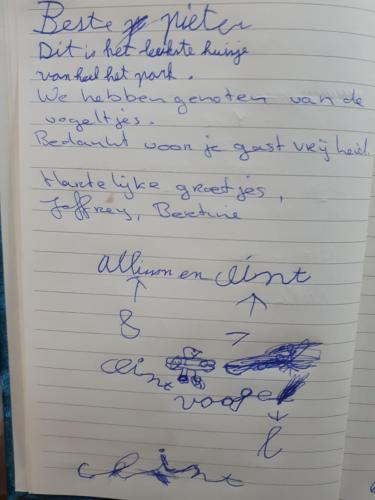 Beste pieter
Dit is het leukste huisje
van heel het park.
We hebben genoten van de
vogeltjes.
Bedankt voor je gast vrijheid.
Hartelijke groetjes,
Jeffrey, Bertine
allison en clint
8 7
clint
voogel
l
clint